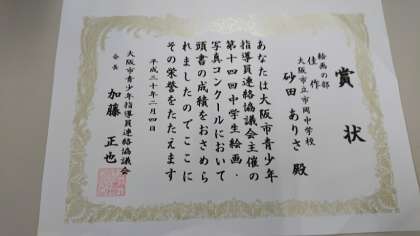 賞状
絵画の部
佳作
大阪市立市岡中学校
砂田ありさ殿
あなたは大阪市青少年
指導員連絡協議会主催の
第十四回中学生絵画・
写真コンクールにおいて
頭書の成績をおさめら
れましたのでここに
その栄誉をたたえます
平成三十年二月四日
大阪市青少年指導員連絡協議会
会長 加藤正也